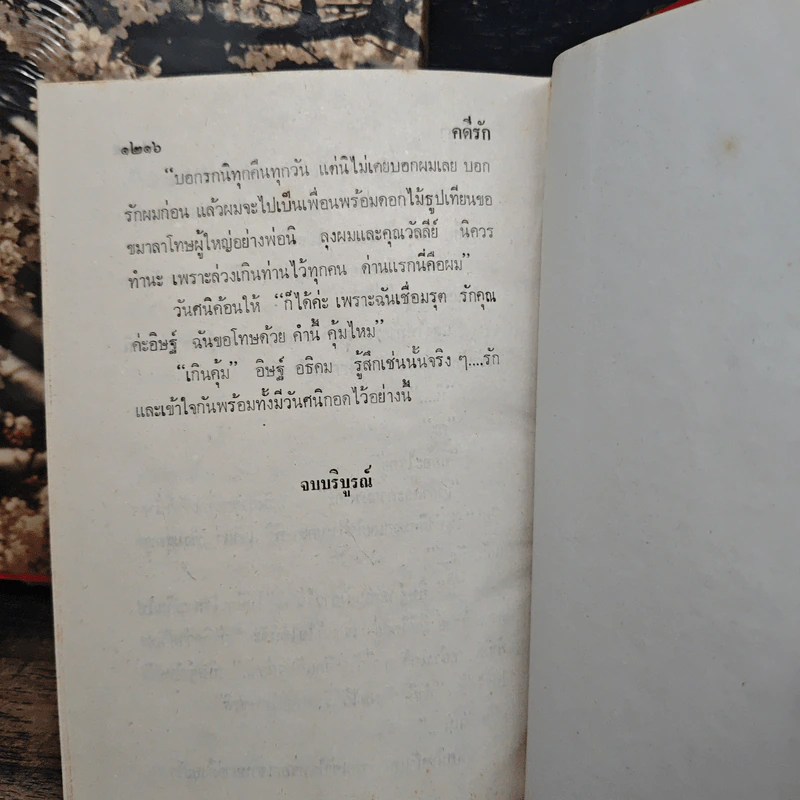 ๑๒๑๖
คดีรัก
“บอกรกนิทุกคืนทุกวัน แต่นิไม่เคยบอกผมเลย บอก
รักผมก่อน แล้วผมจะไปเป็นเพื่อนพร้อมดอกไม้ธูปเทียนขอ
ขมาลาโทษผู้ใหญ่อย่างพ่อนิ ลุงผมและคุณวัลลีย์ นิควร
ทำนะ เพราะล่วงเกินท่านไว้ทุกคน ด่านแรกนี่คือผม”
วันศนิค้อนให้ “ก็ได้ค่ะ เพราะฉันเชื่อมรุต รักคุณ
ค่ะอิษฐ์ ฉันขอโทษด้วย คำนี้ คุ้มไหม”
“เกินคุ้ม” อิษฐ์ อธิคม รู้สึกเช่นนั้นจริง ๆ....รัก
และเข้าใจกันพร้อมทั้งมีวันศนิกอดไว้อย่างนี้
จบบริบูรณ์